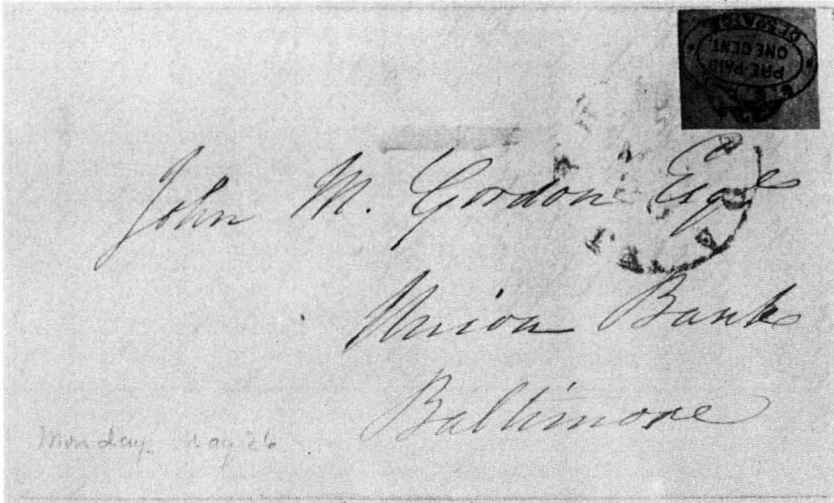 PRE-PAID
ONE CENT.
John M. Gordon Esq
Union Bank
Baltimore
Monday May 26